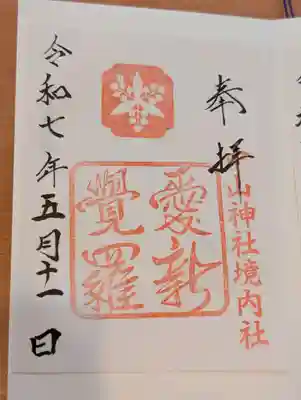 奉拝
山神社境内社
愛新
覺羅
令和七年五月十一日